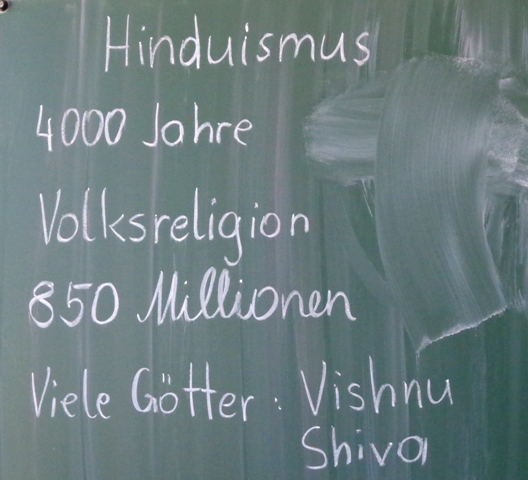 Hinduismus
4000 Jahre
Volksreligion
850 Millionen
Viele Götter : Vishnu
Shiva